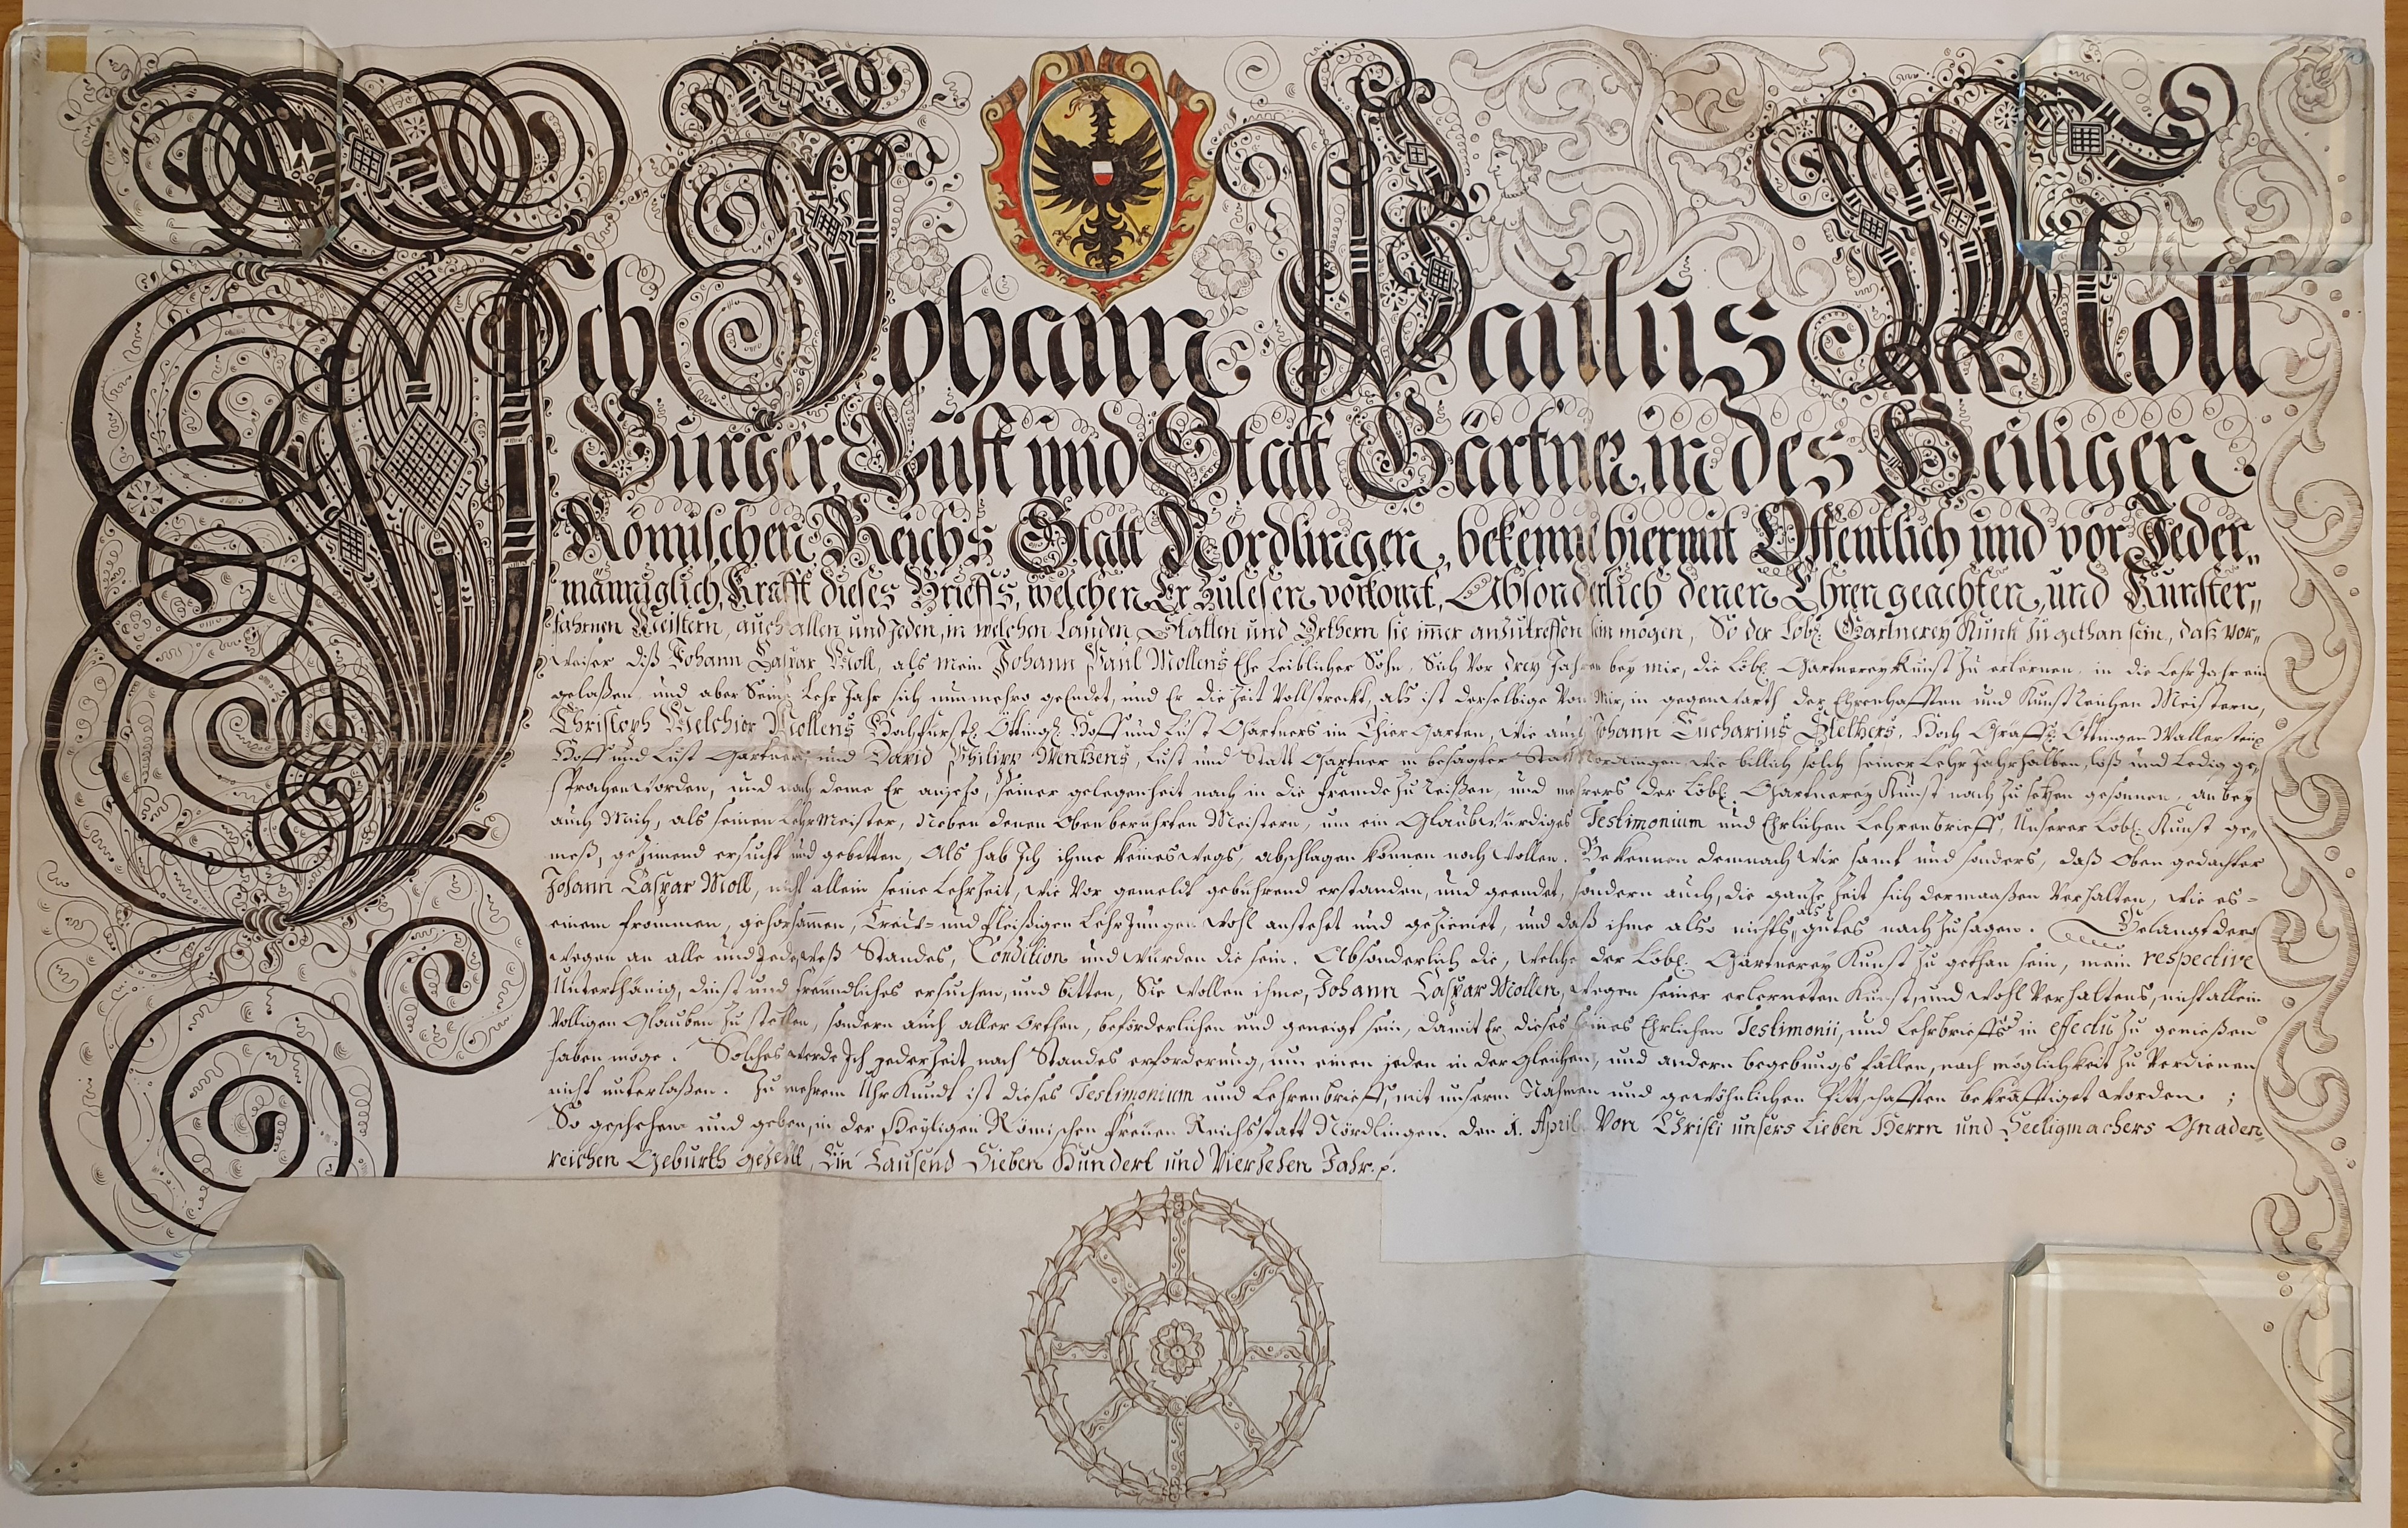 Ich Johann Paulus Moll
Burger, Lust und Statt Gärtner, in des Heiligen
Römischen Reichs Statt Nördlingen, bekenne hiermit Offentlich und vor Jeder„
männiglich, Krafft dieses Brieffs, welchen Er zulesen vorkomt, Absonderlich denen Ehren geachten, und Kunster„
fahrnen Meistern, auch allen und Jeden, in welchen Landen, Stätten und Orthern sie immer anzutreffen sein mögen, So der Löbl. Gärtnerey Kunst zu gethan sein, daß vor„
weiser diß Johann Caspar Moll, als mein Johann Paul Mollens Ehe Leiblicher Sohn, Sich vor drey Jahren bey mir, die Löbl. Gärtnerey Kunst zu erlernen, in die Lehr Jahr ein
gelaßen, und aber Seine Lehr Jahr sich nunmehro geEndet, und Er die Zeit Vollstreckt, als ist derselbige von Mir, in gegenwarth der Ehrenhafften und Kunst Reichen Meistern,
Christoph Melchior Mollens Hochfürstl. Öttingl. Hoff und Lust Gärtners im Thier Garten, wie auch Johann Eucharius Stelhers, Hoch Gräffl. Öttingen Wallerstein
Hoff und Lust Gärtner, und David Philipp Mentzens, Lust und Statt Gärtner in besagter Statt Nördlingen, wie billich solch seiner Lehr Jahr halben, loß und Ledig ge„
sprochen worden, und nach deme Er anjezo, seiner gelegenheit nach in die Fremde zu Reißen, und mehrers der Löbl. Gärtnerey Kunst nach zu setzen gesonnen, anbey
auch Mich, als seinen LehrMeister, Neben denen Oben berührten Meistern, um ein Glaubwürdiges Testimonium und Ehrlichen Lehrenbrieff, Unserer Löbl. Kunst ge„
meß, geziemend ersucht und gebetten, Als hab Ich ihme keines wegs, abschlagen können noch wollen. Bekennen demnach wir samt und sonders, daß Oben gedachter
Johann Caspar Moll, nicht allein seine Lehrzeit, wie Vor gemeldt gebührend erstanden, und geendet, sondern auch, die ganze Zeit sich dermaaßen Verhalten, wie es =
einem frommen, gehorsamen, Treu= und fleißigen Lehr Jungen wohl anstehet und geziemet, und daß ihme also nichts, als gutes nach zu sagen. Gelangt dero
wegen an alle und Jede weß Standes, Condition und würden die sein. Absonderlich die, welche der Löbl. Gärtnerey Kunst zu gethan sein, mein respective
Unterthänig, dinst und freündliches ersuchen, und bitten, Sie wollen ihme, Johann Caspar Mollen, wegen seiner erlerneten Kunst, und wohl Verhaltens, nicht allein
Völligen Glauben zu stellen, sondern auch aller Orthen, beförderlichen und geneigt sein, damit Er dieses seines Ehrlichen Testimonii, und Lehrbrieffs in effectu zu genießen
haben möge. Solches werde Ich jederzeit nach Standes erforderung, um einen jeden in der gleichen, und andern begebungs fällen, nach möglichkeit zu Verdienen
nicht unterlaßen. Zu mehrem Uhrkundt ist dieses Testimonium und Lehrenbrieff, mit unserm Nahmen und gewöhnlichen Pittschafften bekräfftiget worden ;
So geschehen und geben, in der Heyligen Römischen freyen Reichsstatt Nördlingen. Den 1. April. Von Christi unsers Lieben Herrn und Seeligmachers Gnaden
reichen Geburth gezehlt, Ein Tausend Sieben Hundert und Vierzehen Jahr. p.